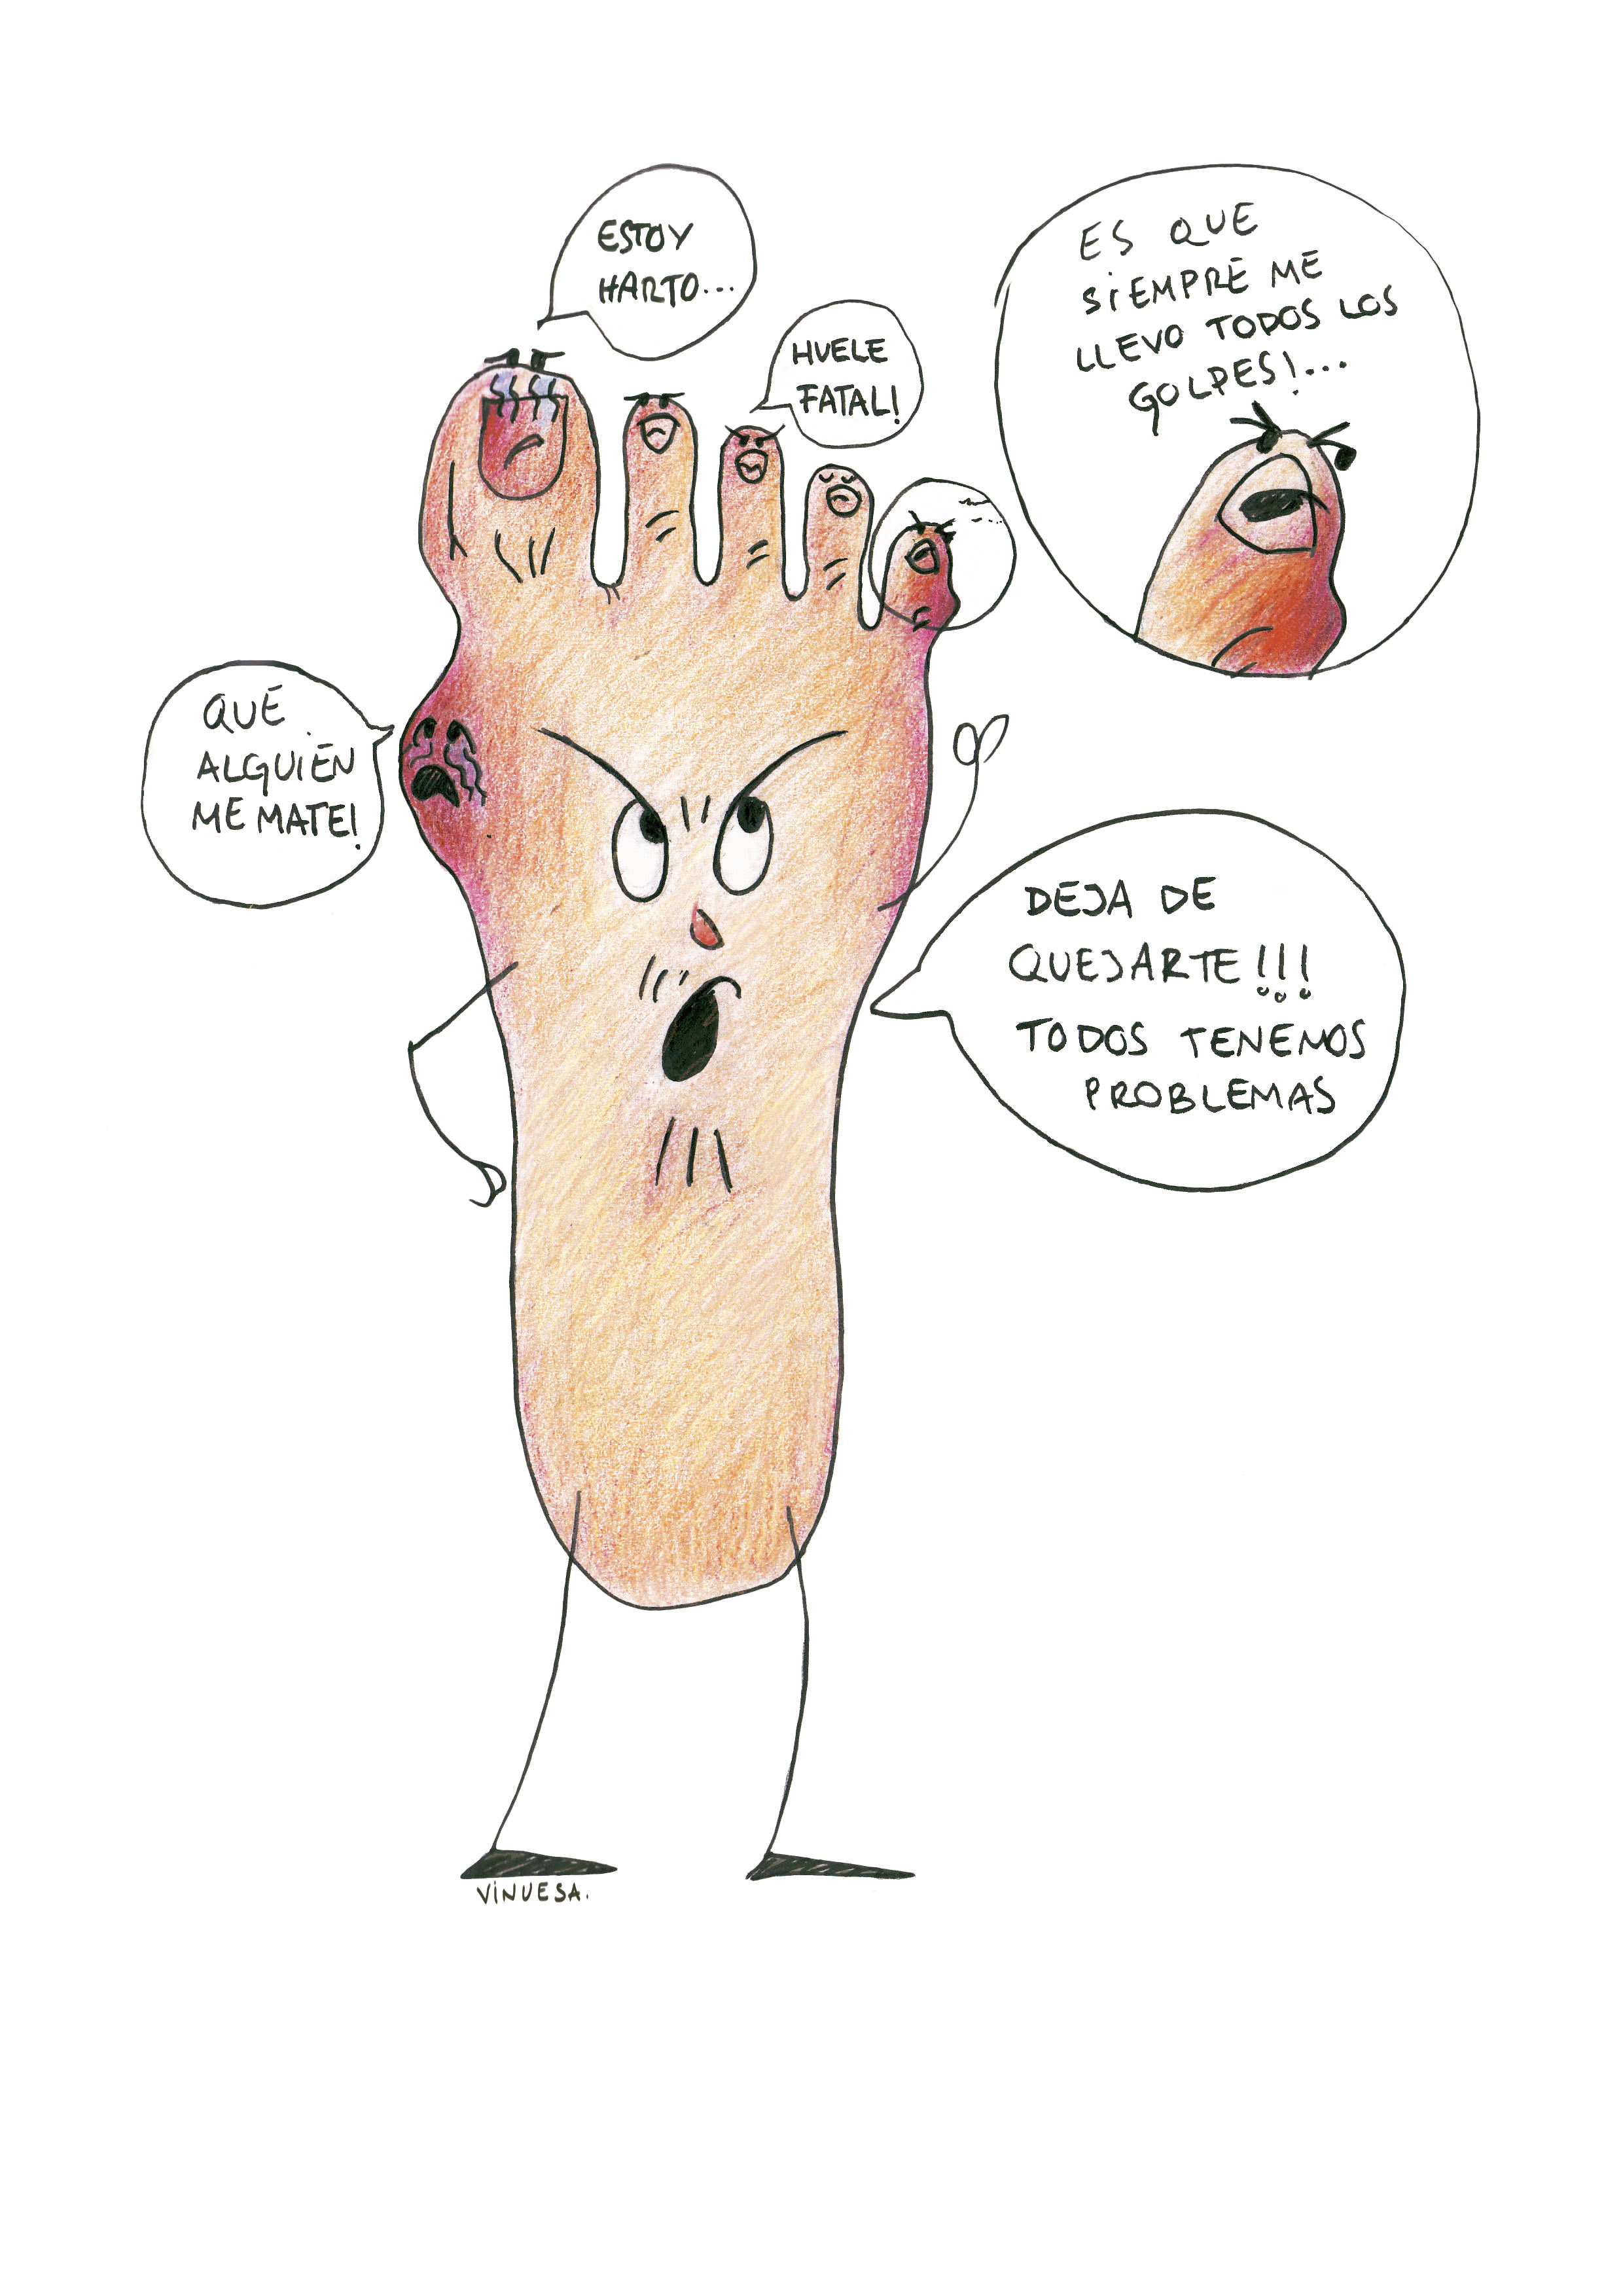 ESTOY
HARTO...
HUELE
FATAL!
ES QUE
SIEMPRE ME
LLEVO TODOS LOS
GOLPES!...
QUE
ALGUIEN
ME MATE!
DEJA DE
QUEJARTE!!!
TODOS TENEMOS
PROBLEMAS
VINUESA.